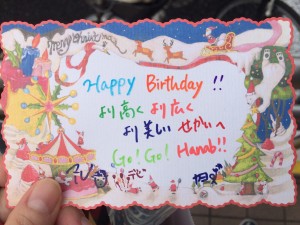 Merry Christmas
Happy Birthday !!
より高く より広く
より美しい せかいへ
Go! Go! Hanab!!